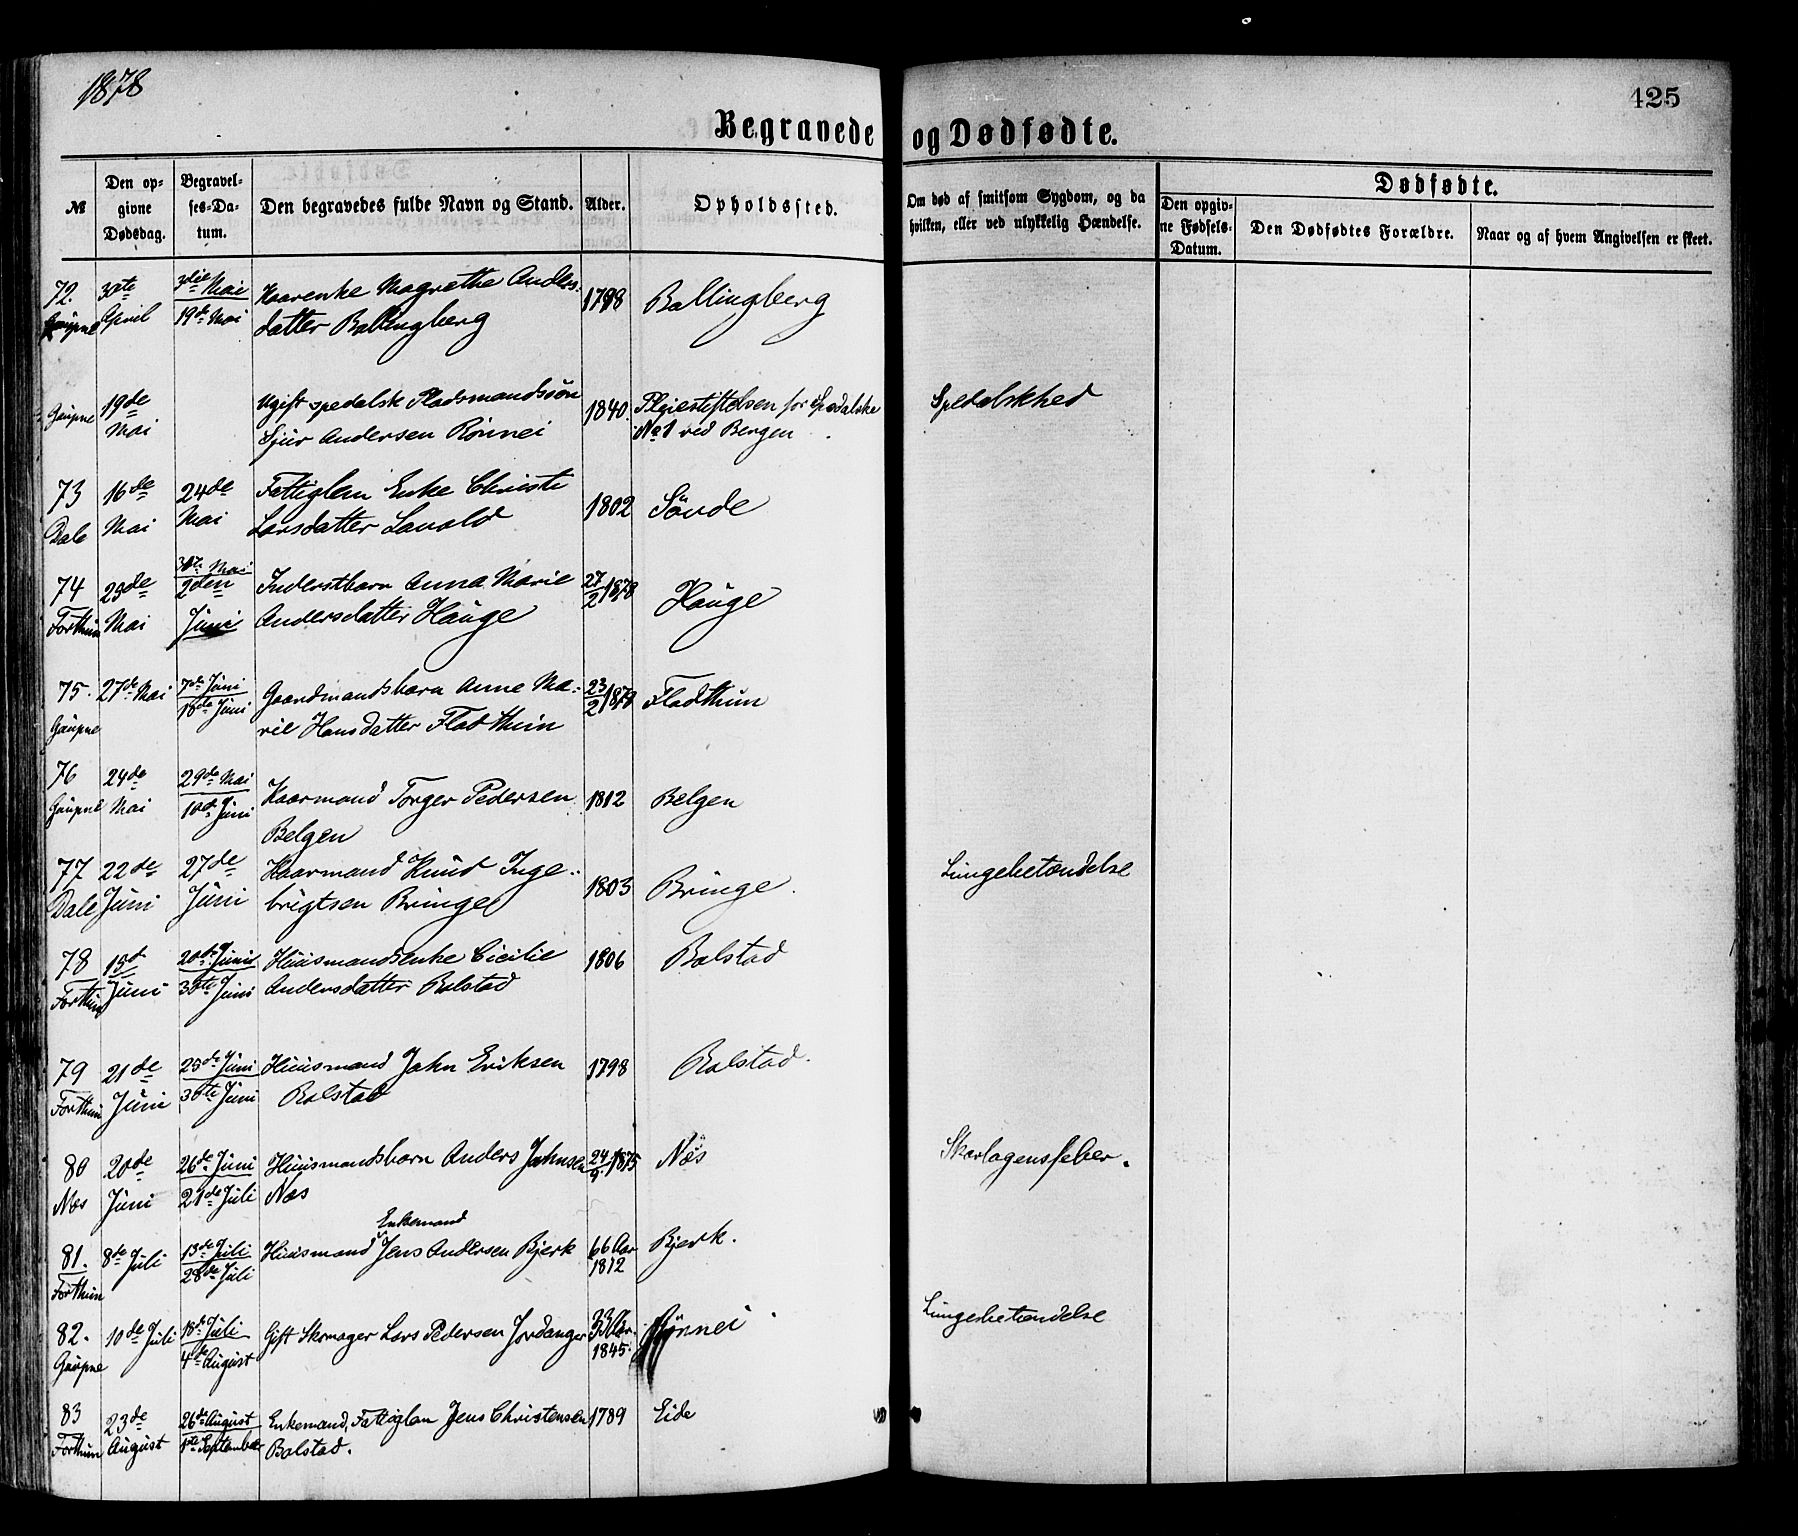 1878
425
Begravede og Dødfødte.
№
Den opgivne Dødsdag.
Begravelses-Datum.
Den begravedes fulde Navn og Stand.
Alder.
Opholdssted.
Om død af smitsom Sygdom, og da hvilken, eller ved ulykkelig Hændelse.
Dødfødte.
Den opgivne Fødsels-Datum.
Den Dødfødtes Forældre.
Naar og af hvem Angivelsen er skeet.
72. 30te 3die Mai Kaarenke Magrethe Anders- 1798 Ballingberg
Gaupne April 19de Mai datter Ballingberg
Gaupne 19de Mai Ugift spedalsk Pladsmandssøn 1840. Pleiestiftelsen for Spedalske Spedalskhed
Sjur Andersen Rønnei No 1 ved Bergen
73 16de 24de Fattiglem Enke Christi 1802 Sönde
Dale Mai Mai Larsdatter Lavold
74 23de 30te Mai Inderstbarn Anna Marie 27/2 1878 Hauge
Forthun Mai 2den Juni Andersdatter Hauge
75. 27de Mai 7de Juni Gaardmandsbarn Anne Ma- 23/2 1878 Fladthun
Gaupne 10de Juni rie Hansdatter Fladthun
76 24de 29de Mai Kaarmand Torger Pedersen 1812 Belgen
Gaupne Mai 10de Juni Belgen
77 22de 27de Kaarmand Knud Inge- 1803 Bringe. Lungebetændelse
Dale Juni Juni brigtsen Bringe
78 15d 20de Juni Huusmandsenke Cicilie 1806 Bolstad
Forthun Juni 30te Juni Andersdatter Bolstad
79 21de 25de Juni Huusmand John Eriksen 1798 Bolstad.
Forthun Juni 30te Juni Bolstad
80 20de 26de Juni Huusmandsbarn Anders Johnsen 24/9 1875 Næs Skarlagensfeber.
Næs Juni 21de Juli Næs
Enkemand
81. 8de Juli 13de Juli Huusmand Jens Andersen Bjerk 66 Aar Bjerk.
Forthun 28de Juli 1812
82. 10de Juli 18de Juli Gift Skomager Lars Pedersen Jordanger 33 Aar. Rønnei Lungebetændelse
Gaupne 4de August 1845.
83 23de 26de August Enkemand, Fattiglem Jens Christensen 1789 Eide
Forthun August 1ste September Bolstad.